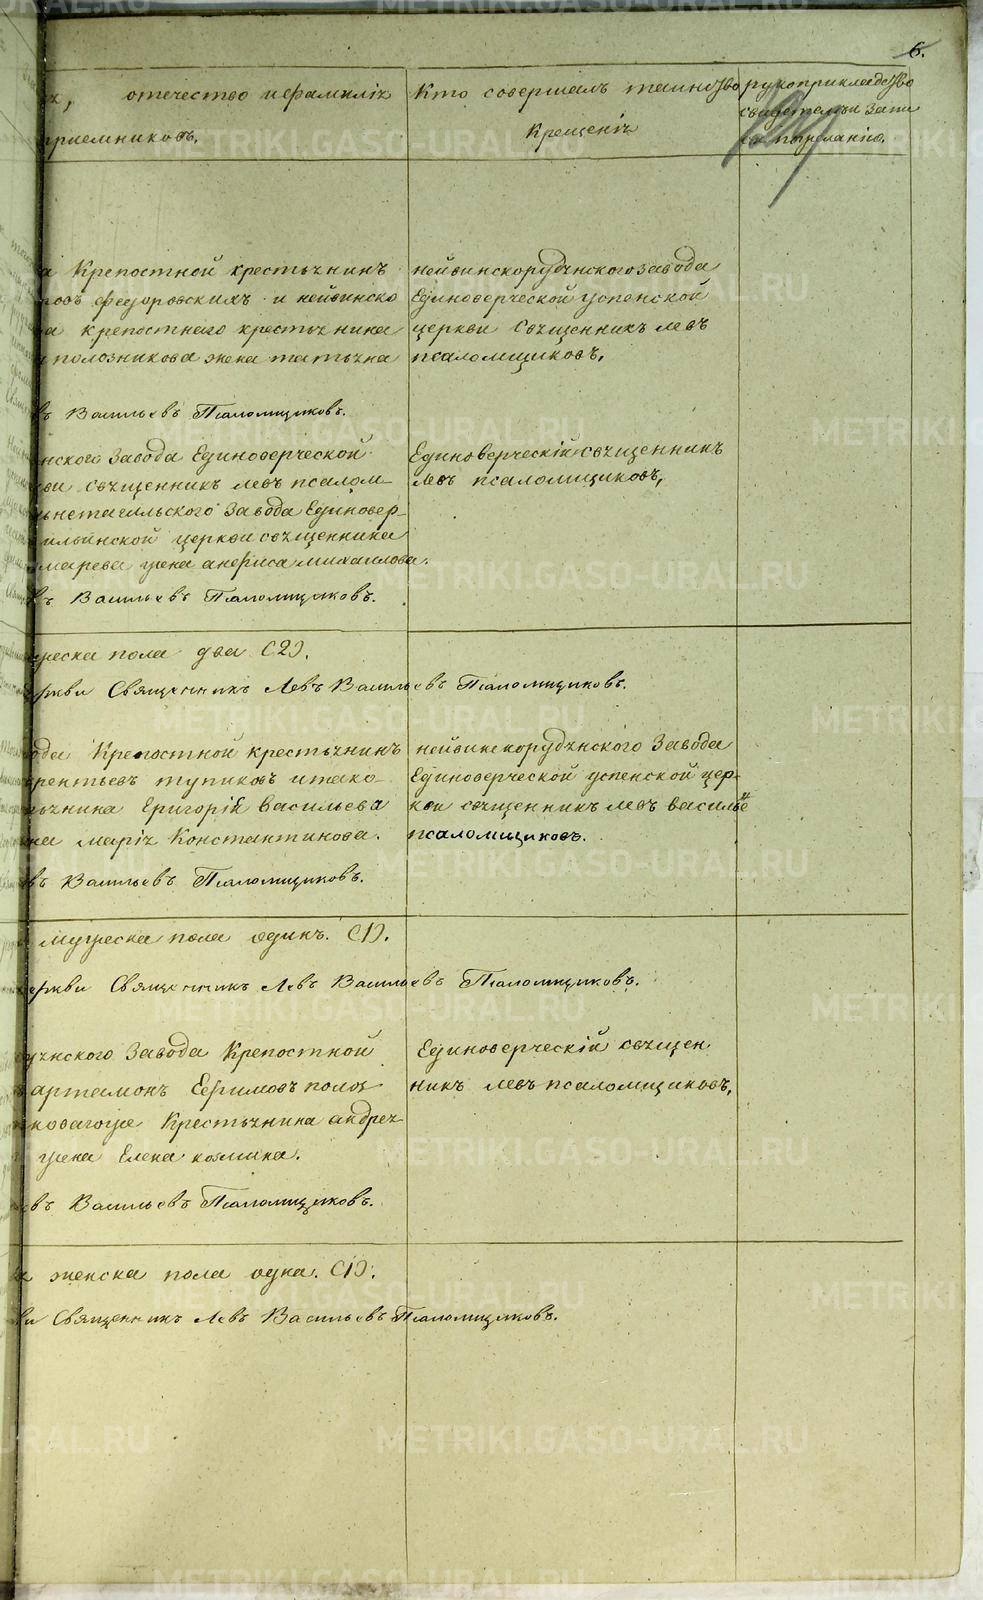 6.
отечество и фамилія
приемниковъ.
Кто совершалъ таинство
Крещенія
рукоприкладство
свидетелей Запи
си по желанію.
а Крепостной крестьянинъ
овъ федоровскихъ и нейвинско
а крепостнаго крестьянина
полозникова жена татьяна
въ Васильевъ Псаломщиковъ.
нейвинскорудянского завода
Единоверческой успенской
церкви священникъ левъ
псаломщиковъ,
нского завода Единоверческой
ви священникъ левъ псалом
ьнетагильского завода Единовер
ильинской церкви священника
марева жена анфиса михаилова.
въ Васильевъ Псаломщиковъ.
Единоверческій священникъ
левъ псаломщиковъ,
мужеска пола два (2).
церкви Священникъ Левъ Васильевъ Псаломщиковъ.
ода Крепостной крестьянинъ
врентьевъ тупиковъ и тако
тьянина Григорія Васильева
на марія Константинова.
въ Васильевъ Псаломщиковъ.
нейвинскорудянского Завода
Единоверческой успенской цер
кви священникъ левъ василье
псаломщиковъ.
мужеска пола одинъ. (1).
церкви Священникъ Левъ Васильевъ Псаломщиковъ.
дянского Завода Крепостной
артамонъ Ефимовъ полоз
коваго же Крестьянина андрея
жена Елена козмина.
евъ Васильевъ Псаломщиковъ.
Единоверческій священ
никъ левъ псаломщиковъ,
женска пола одна. (1).
ви Священникъ Левъ Васильевъ Псаломщиковъ.
METRIKI.GASO-URAL.RU